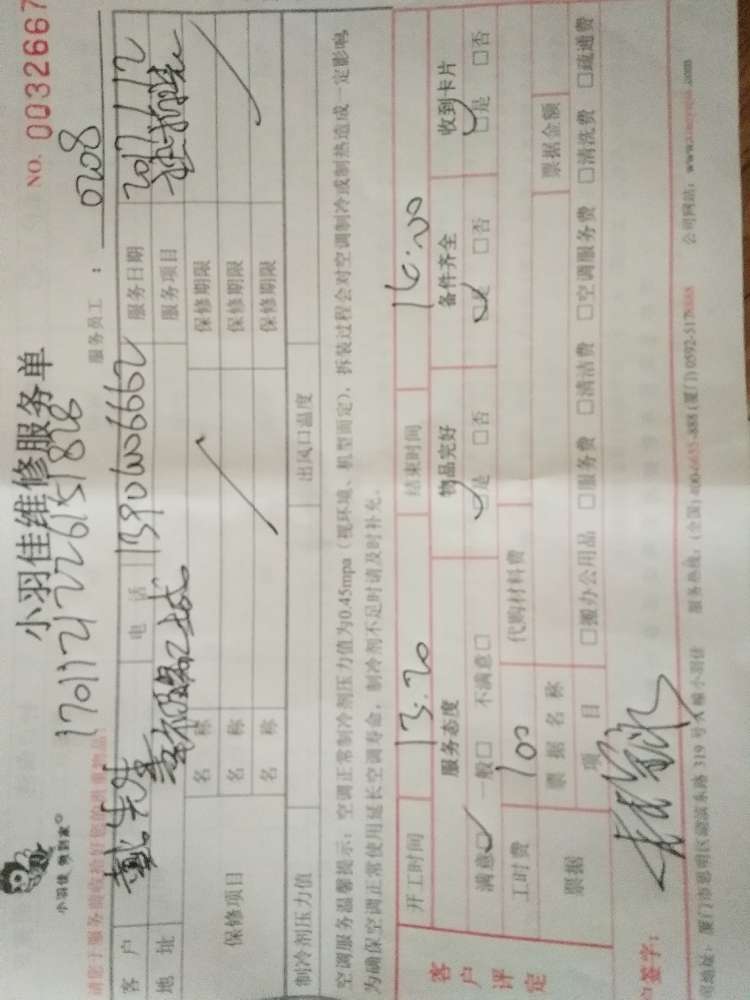 小羽佳 勤到家
小羽佳维修服务单
NO. 0032667
1701121226151828
服务员工： 0208
请您于服务前收拾好您的贵重物品
客户 戴先生 电话 13906006662 服务日期 2017/1/12
地址 服务项目
保修项目 名称 保修期限
名称 保修期限
名称 保修期限
制冷剂压力值 出风口温度
空调服务温馨提示：空调正常制冷剂压力值为0.45mpa（视环境、机型而定），拆装过程会对空调制冷或制热造成一定影响
为确保空调正常使用延长空调寿命，制冷剂不足时请及时补充。
客户评定
开工时间 13.20 结束时间 16.00
服务态度 物品完好 备件齐全 收到卡片
满意□ 一般□ 不满意□ □是 □否 □是 □否 □是 □否
工时费 100 代购材料费
票据 票据名称 票据金额
项目 □搬办公用品 □服务费 □清洁费 □空调服务费 □清洗费 □疏通费
户签字：
地址：厦门市思明区 东路 319号 小羽佳 服务热线：(全国)400-6655-888 (厦门)0592-5178888 公司网站：www. .com